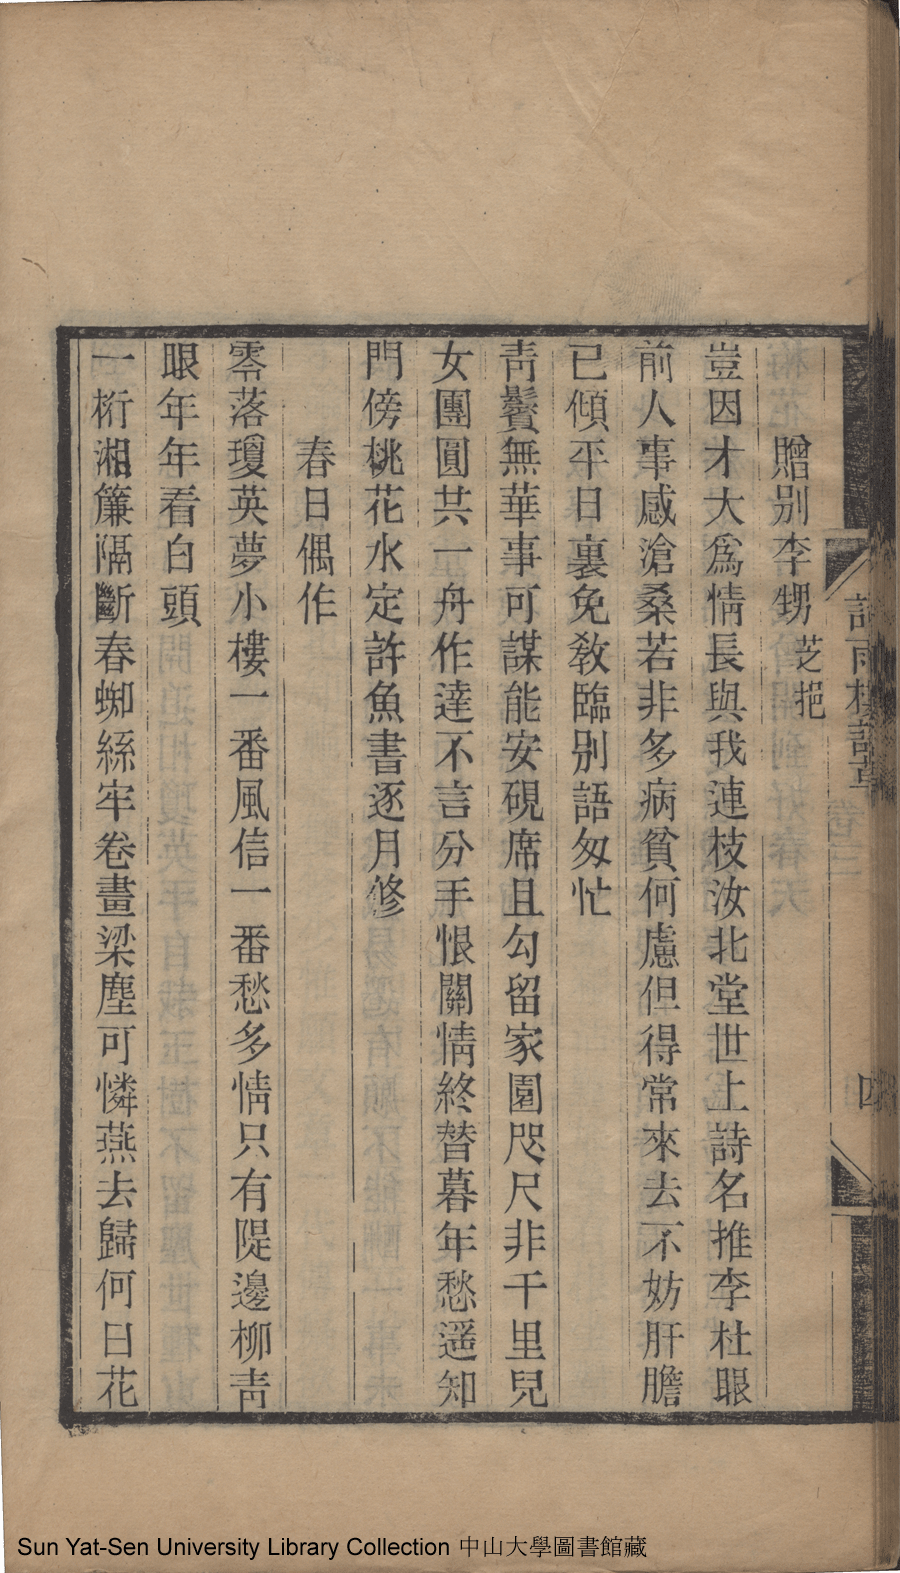 贈別李甥芝挹
豈因才大爲情長與我連枝汝北堂世上詩名推李杜眼
前人事感滄桑若非多病貧何慮但得常來去不妨肝膽
已傾平日裏免教臨別語匆忙
靑鬢無華事可謀能安硯席且勾留家園咫尺非千里兒
女團圓共一舟作達不言分手恨關情終替暮年愁遥知
門傍桃花水定許魚書逐月修
春日偶作
零落瓊英夢小樓一番風信一番愁多情只有隄邊柳靑
眼年年看白頭
一桁湘簾隔斷春蜘絲牢卷畫梁塵可憐燕去歸何日花
雨樓詩草
卷三
四
Sun Yat-Sen University Library Collection 中山大學圖書館藏